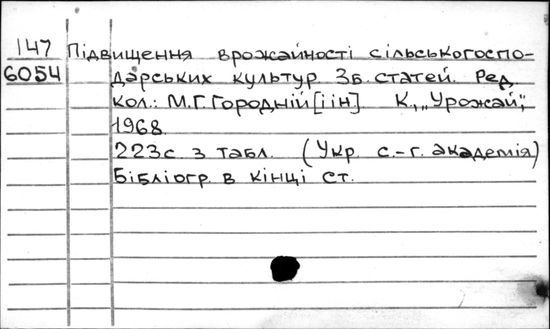 147 Підвищення врожайності сільськогоспо-
6054 дарських культур. Зб. статей. Ред.
кол.: М.Г.Городній [і ін]. К., „Урожай",
1968.
223с. з табл. (Укр. с.-г. академія)
Бібліогр. в кінці ст.